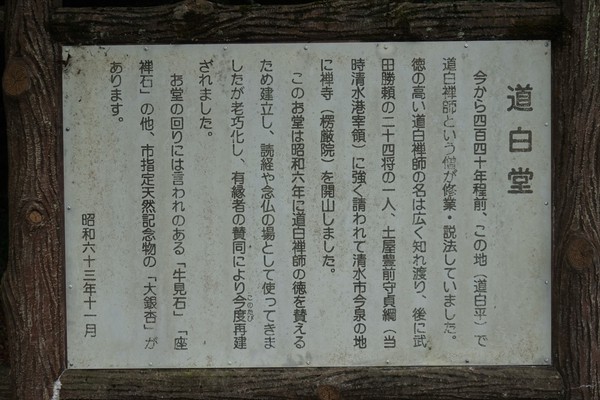 道白堂
今から四百四十年程前、この地（道白平）で
道白禅師という僧が修業・説法していました。
徳の高い道白禅師の名は広く知れ渡り、後に武
田勝頼の二十四将の一人、土屋豊前守貞綱（当
時清水港宰領）に強く請われて清水市今泉の地
に禅寺（楞厳院）を開山しました。
このお堂は昭和六年に道白禅師の徳を賛える
ため建立し、読経や念仏の場として使ってきま
したが老巧化し、有縁者の賛同により今度再建
このたび
されました。
お堂の回りには言われのある「牛見石」「座
禅石」の他、市指定天然記念物の「大銀杏」が
あります。
昭和六十三年十一月